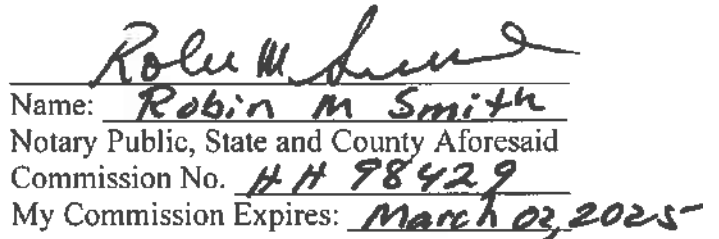 Robin M Smith
Name: Robin M Smith
Notary Public, State and County Aforesaid
Commission No. HH 98429
My Commission Expires: March 02, 2025